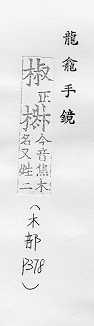 龍龕手鏡
椒正
今音焦木
名又姓二
(木部
P378)